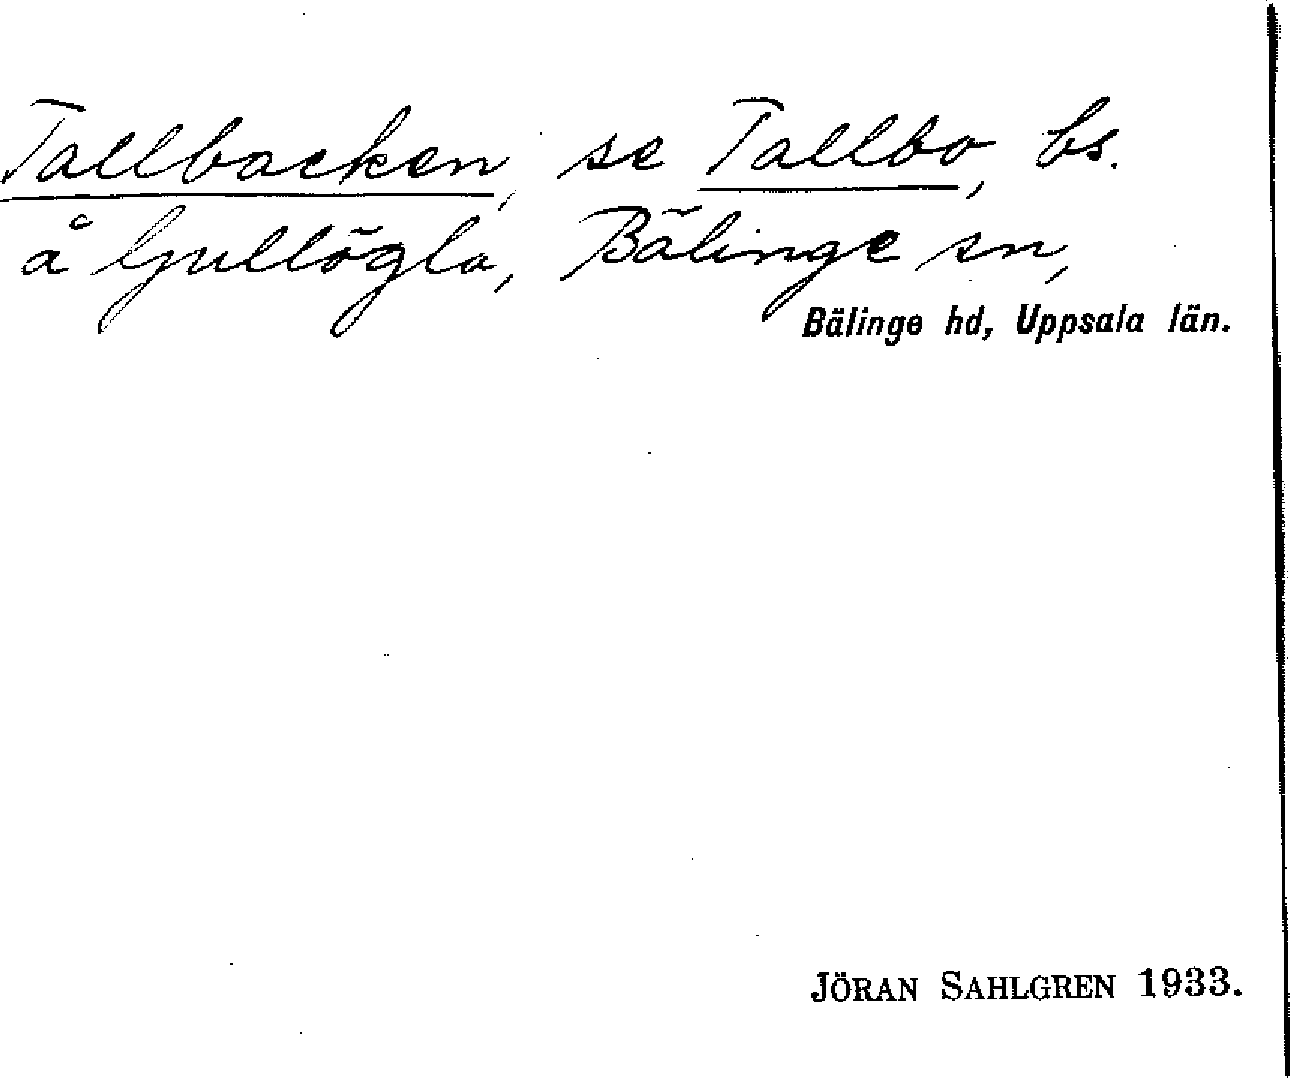 Tallbacken, se Tallbo, bs.
å Gullögla, Bälinge sn,
Bälinge hd, Uppsala län.
JÖRAN SAHLGREN 1933.